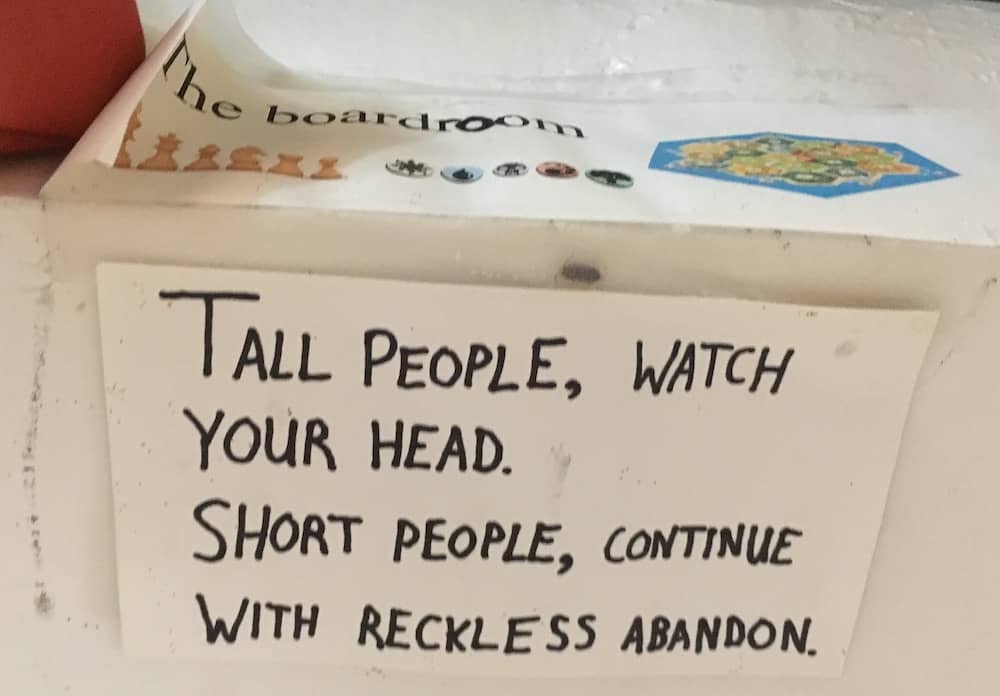 The boardroom
TALL PEOPLE, WATCH
YOUR HEAD.
SHORT PEOPLE, CONTINUE
WITH RECKLESS ABANDON.